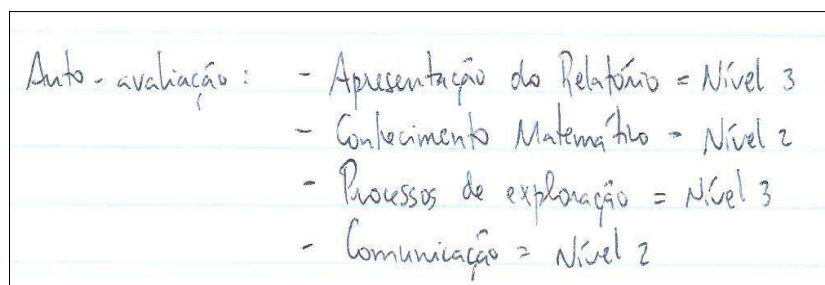 Auto-avaliação: - Apresentação do Relatório = Nível 3
- Conhecimento Matemático = Nível 2
- Processos de exploração = Nível 3
- Comunicação = Nível 2